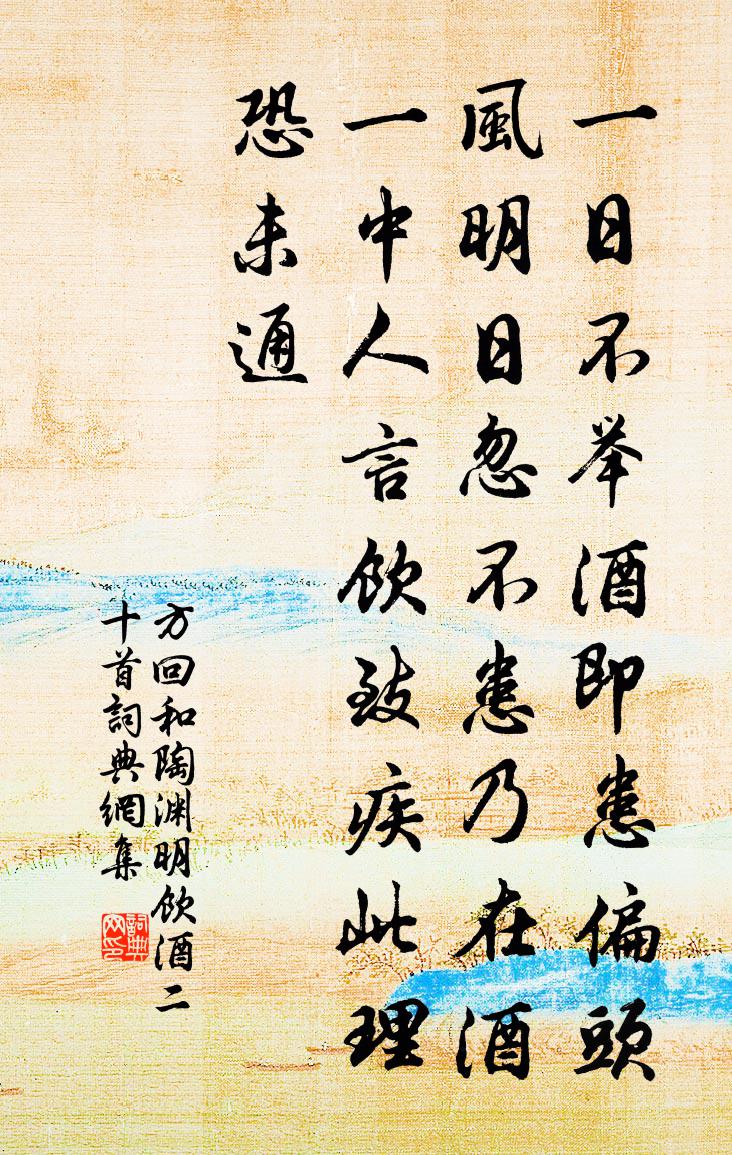 一日不举酒即患偏頭
風明日忽不患乃在酒
一中人言飲致疾此理
恐未通
方回和陶渊明飲酒二
十首詞典網集
詞典
网印